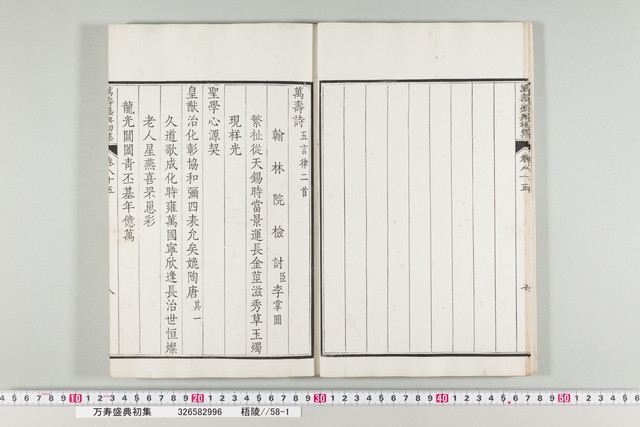 萬壽盛典初集
卷八十五
萬壽詩五言律二首
翰林院檢討臣李掌圓
繁祉從天錫時當景運長金莖滋秀草玉燭
現祥光
聖學心源契
皇猷治化彰協和彌四表允矣媲陶唐其一
久道歌成化時雍萬國寧欣逢長治世恒燦
老人星燕喜罘恩彩
龍光闔闔青丕基年億萬
萬壽盛典初集
卷八十五
八
万寿盛典初集 326582996 梧陵//58-1